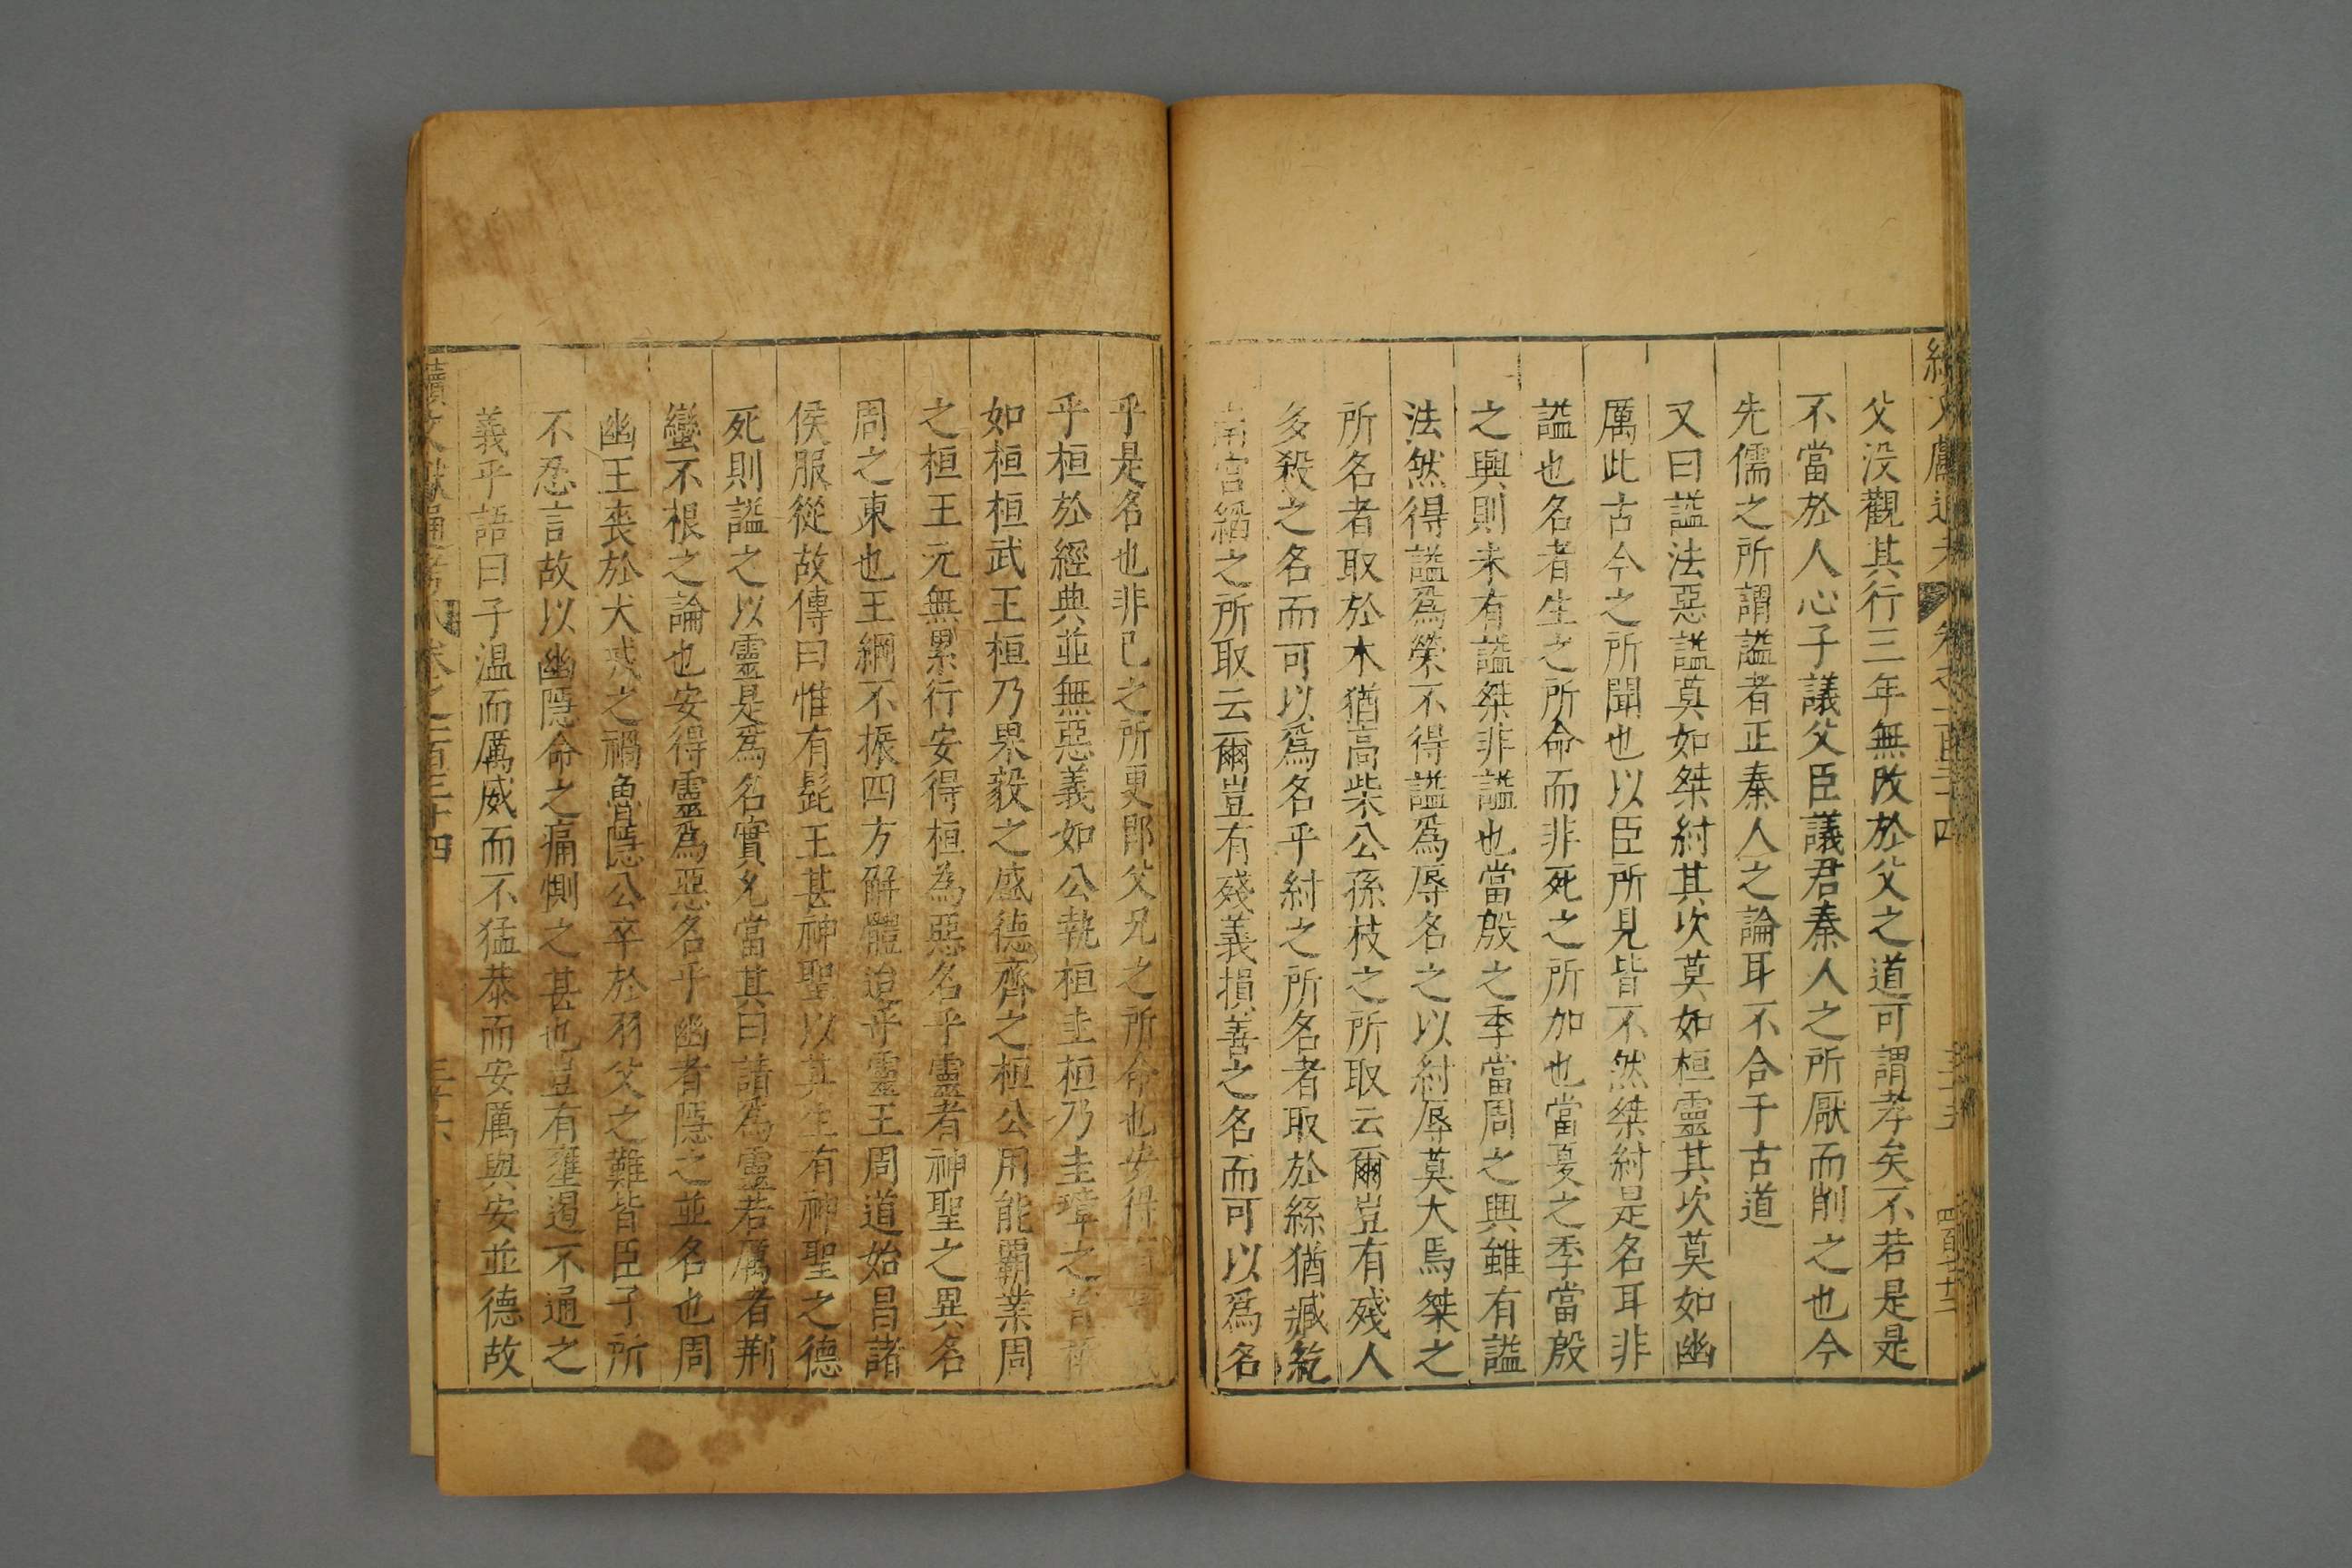 續文獻通考 卷之一百三十四
父没觀其行三年無改於父之道可謂孝矣不若是是
不當於人心子議父臣議君秦人之所厭而削之也今
先儒之所謂謚者正秦人之論耳不合于古道
又曰謚法惡謚莫如桀紂其次莫如桓靈其次莫如幽
厲此古今之所聞也以臣所見皆不然桀紂是名耳非
謚也名者生之所命而非死之所加也當夏之季當殷
之興則未有謚桀非謚也當殷之季當周之興雖有謚
法然得謚爲榮不得謚爲辱名之以紂辱莫大焉桀之
所名者取於木猶高柴公孫枝之所取云爾豈有殘人
多殺之名而可以爲名乎紂之所名者取於絲猶臧紇
南宮縚之所取云爾豈有殘義損善之名而可以爲名
乎是名也非已之所更即父兄之所命也安得
乎桓於經典並無惡義如公執桓圭桓乃圭璋之
如桓桓武王桓乃果毅之盛德齊之桓公用能覇業周
之桓王元無累行安得桓為惡名乎靈者神聖之異名
周之東也王綱不振四方解體迨乎靈王周道始昌諸
侯服從故傳曰惟有髭王甚神聖以其生有神聖之德
死則謚之以靈是爲名實允當其曰請爲靈若厲者荆
蠻不根之論也安得靈爲惡名乎幽者隱之並名也周
幽王喪於犬戎之禍魯隱公卒於羽父之難皆臣子所
不忍言故以幽隱命之痛惻之甚也豈有壅遏不通之
義乎語曰子温而厲威而不猛恭而安厲與安並德故
續文獻通考 卷之一百三十四 三十六